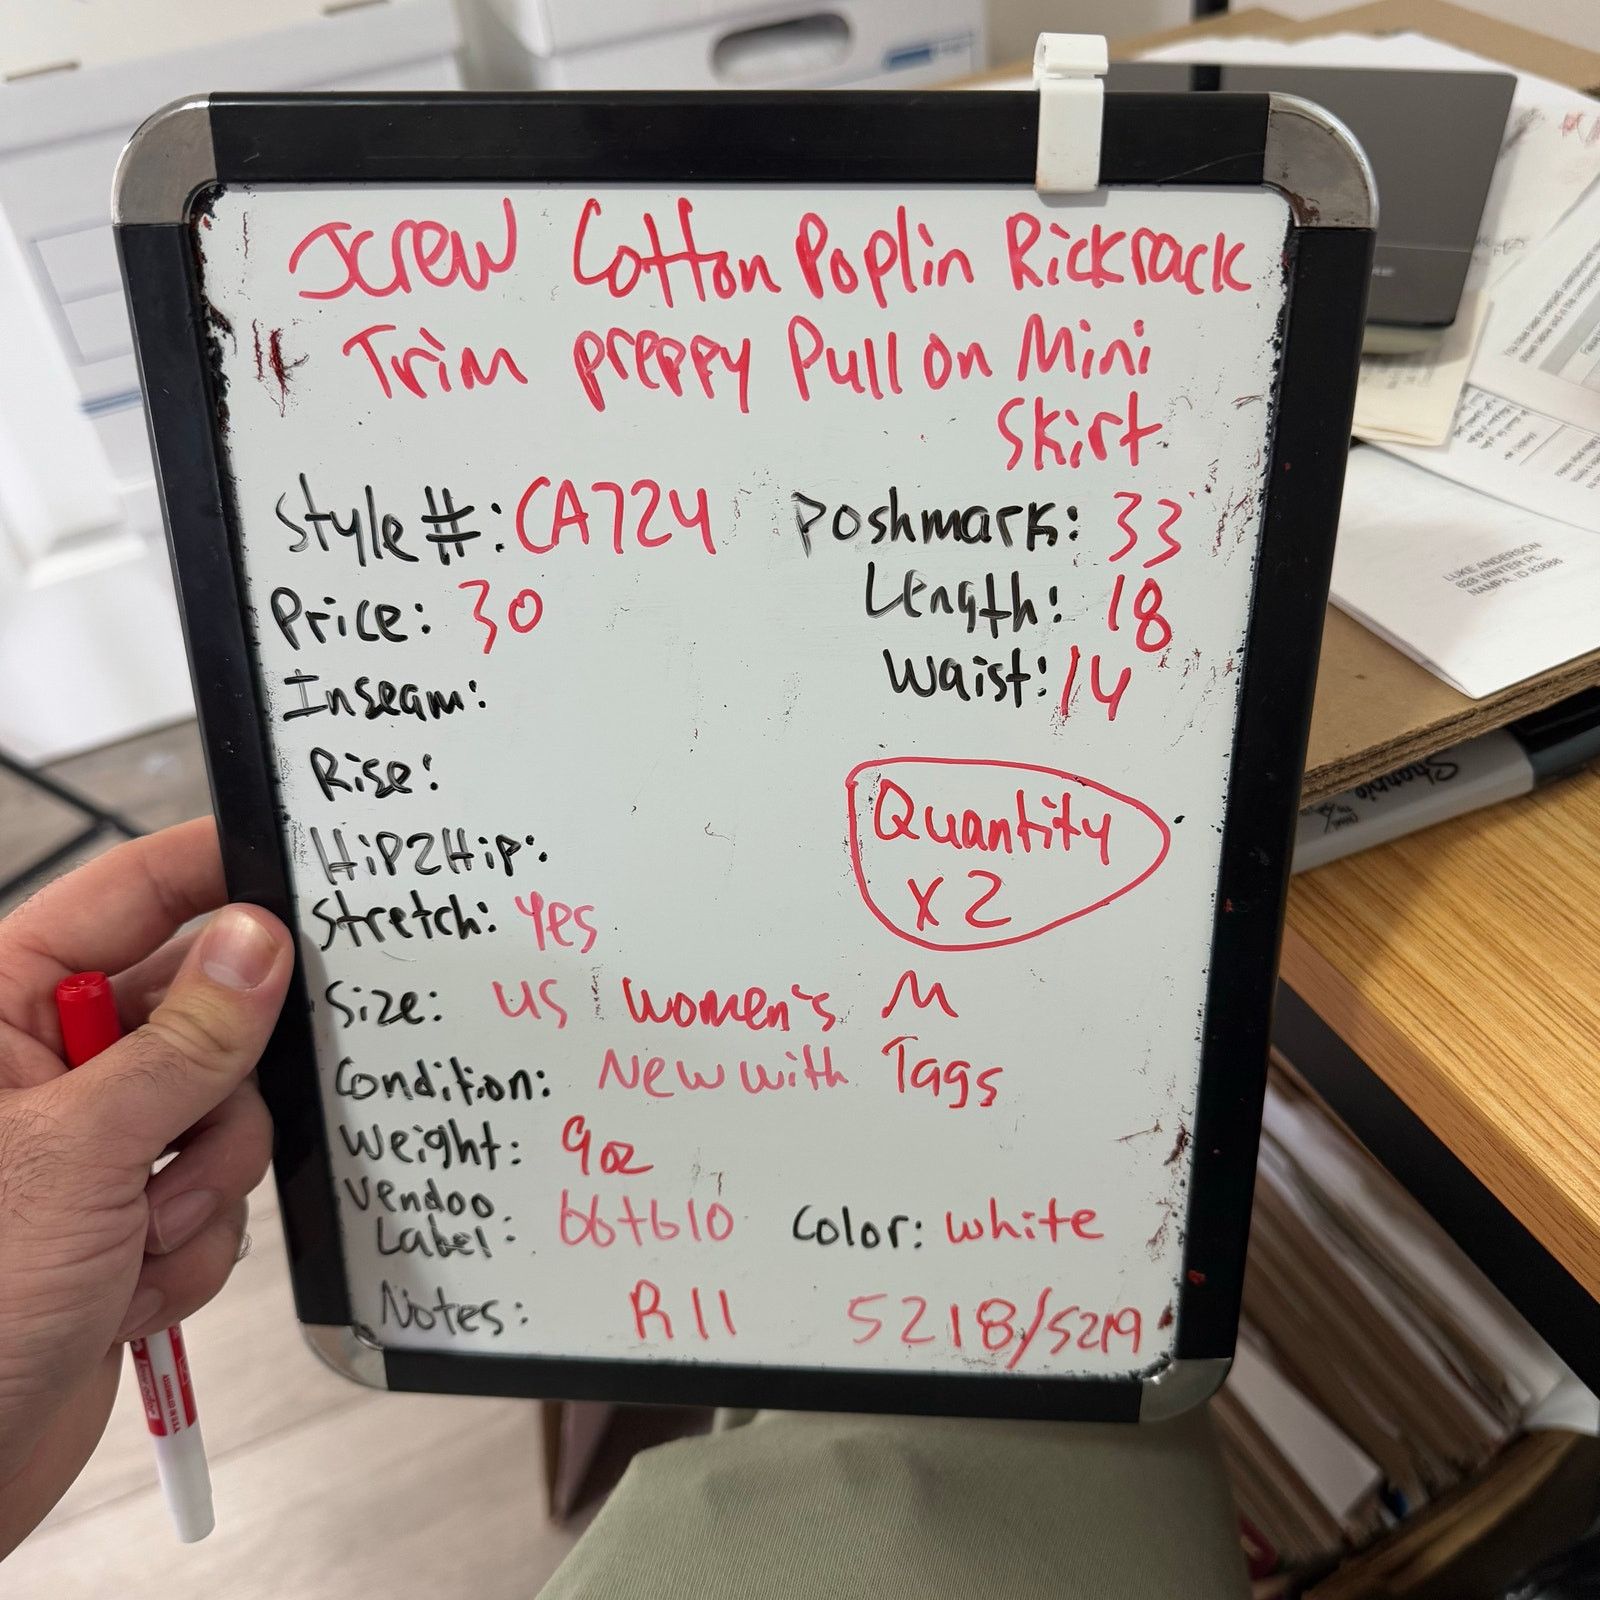 JCrew Cotton Poplin Rickrack
Trim preppy Pull on Mini
Skirt
Style #: CA724
Poshmark: 33
Price: 30
Length: 18
Inseam:
Waist: 14
Rise:
Hip2Hip:
Quantity
x 2
Stretch: Yes
Size: US women's M
Condition: New with Tags
Weight: 9oz
Vendoo
Label: bb+b10
Color: white
Notes: R11 5218/5219
LUKE ANDERSON
NAMPA, ID
Sharpie